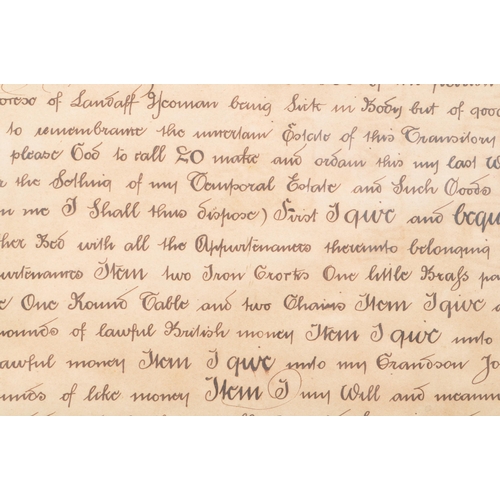 ocese of Landaff Yeoman being Sick in Body but of good
to remembrance the uncertain Estate of this Transitory
please God to call DO make and ordain this my last W
the Setling of my Temporal Estate and Such Goods
me I Shall thus dispose) First I give and beque
ther Bed with all the Appurtenances thereunto belonging
purtenances Item two Iron Crocks One little Brass pa
One Round Table and two Chairs Item I give a
pounds of lawful British money Item I give unto
lawful money Item I give unto my Grandson Jo
ounds of like money Item I my Will and meanin